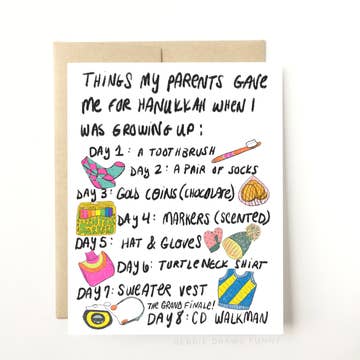 THINGS MY PARENTS GAVE
ME FOR HANUKKAH WHEN I
WAS GROWING UP:
DAY 1: A TOOTHBRUSH
DAY 2: A PAIR OF SOCKS
DAY 3: GOLD COINS (CHOCOLATE)
DAY 4: MARKERS (SCENTED)
DAY 5: HAT & GLOVES
DAY 6: TURTLENECK SHIRT
DAY 7: SWEATER VEST
THE GRAND FINALE!
DAY 8: CD WALKMAN
DEBBIE DRAWS FUNNY